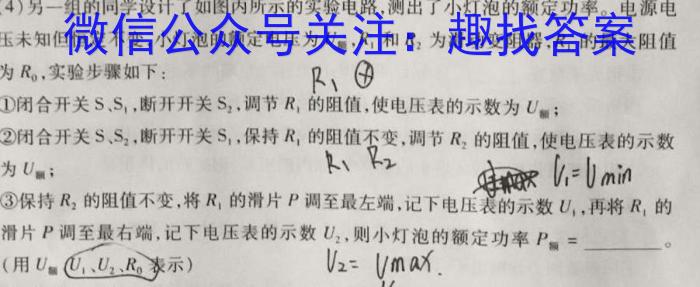 (4)另一组的同学设计了如图丙所示的实验电路,测出了小灯泡的额定功率。电源电
压未知但 小灯泡的额定电压为 和 R₂ 为 阻值
微信公众号关注：趣找答案
为 R₀,实验步骤如下:
R₁
①闭合开关 S、S₁,断开开关 S₂,调节 R₁ 的阻值,使电压表的示数为 U额;
②闭合开关 S、S₂,断开开关 S₁,保持 R₁ 的阻值不变,调节 R₂ 的阻值,使电压表的示数
为 U额;
R₁ R₂
U₁=Umin
③保持 R₂ 的阻值不变,将 R₁ 的滑片 P 调至最左端,记下电压表的示数 U₁,再将 R₁ 的
滑片 P 调至最右端,记下电压表的示数 U₂,则小灯泡的额定功率 P额 = ________。
(用 U额、U₁、U₂、R₀ 表示)
U₂= Umax.